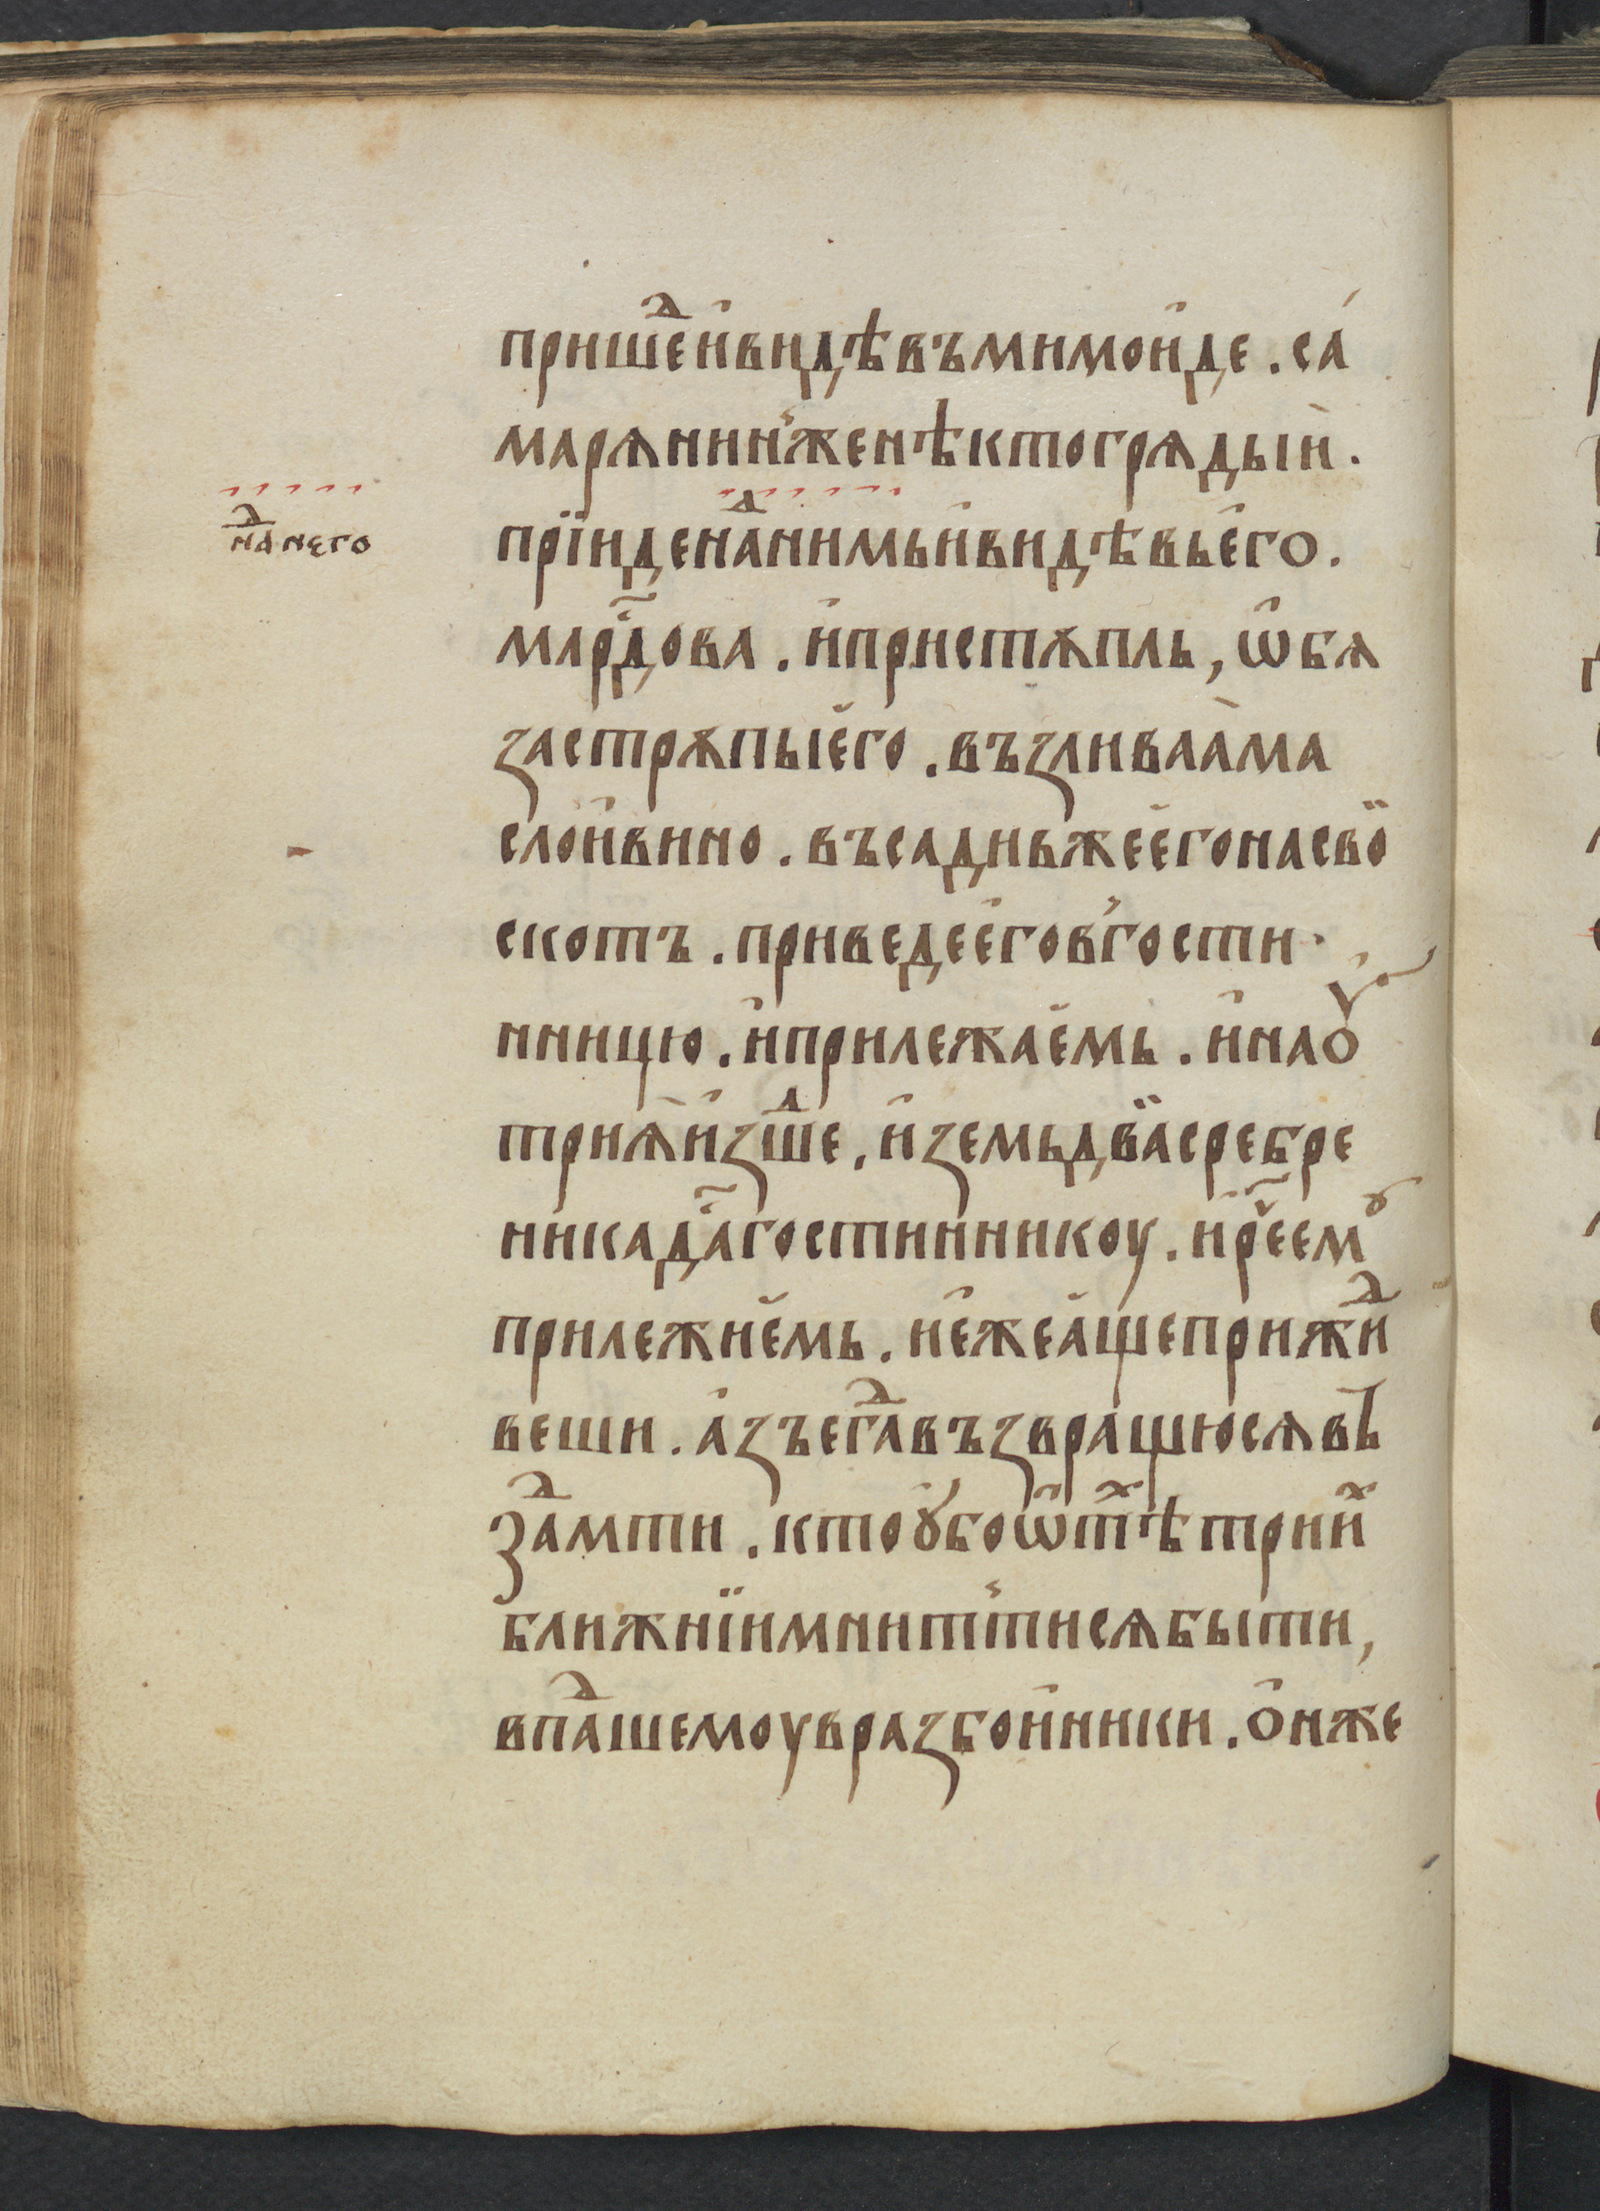 пришеⷣи҆видѣвъмимои҆де. са́
марѧнинꙿженѣктогрѧдыи̇.
прїиденаⷣнимьи҆видѣвье҆го.
наⷣнего
млрⷭ҇дова. и҆пристѫпль, ѡ҆бѧ
застрѫпые҆го. възливаа̀ма
слои҆вино. въсадивьжее҆гонасвои
скотъ. приведее҆говꙿгости
нницю. и҆прилежае҆мь. и҆наоу҆
триѧ҆и҆зшеⷣ. и҆земьдвасребре
никада̑гостинникоу. ирⷱ҇еемꙋ
прилежие҆мь. и҆жеа҆щеприжиⷣ
веши. а҆зъегаⷣвъзвращюсѧвъ
заⷣмти. ктоꙋ҆боѿтѣⷯтрииⷯ
ближнїимнитꙿтисѧбыти,
впаⷣшемоувразбои҆ники. о҆нже